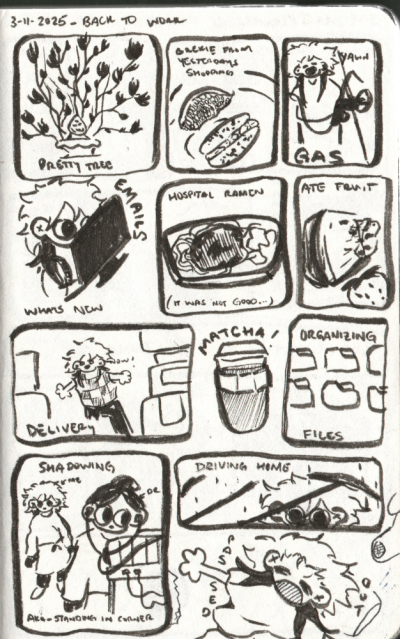 3-11-2025 - BACK TO WORK
PRETTY TREE
COOKIE FROM
YESTERDAYS
SHOPPING
YAWN
GAS
EMAILS
WHATS NEW
HOSPITAL RAMEN
(IT WAS NOT GOOD...)
ATE FRUIT
DELIVERY
MATCHA!
ORGANIZING
FILES
SHADOWING
ME
DR
AKA-STANDING IN CORNER
DRIVING HOME
PASSED
OUT